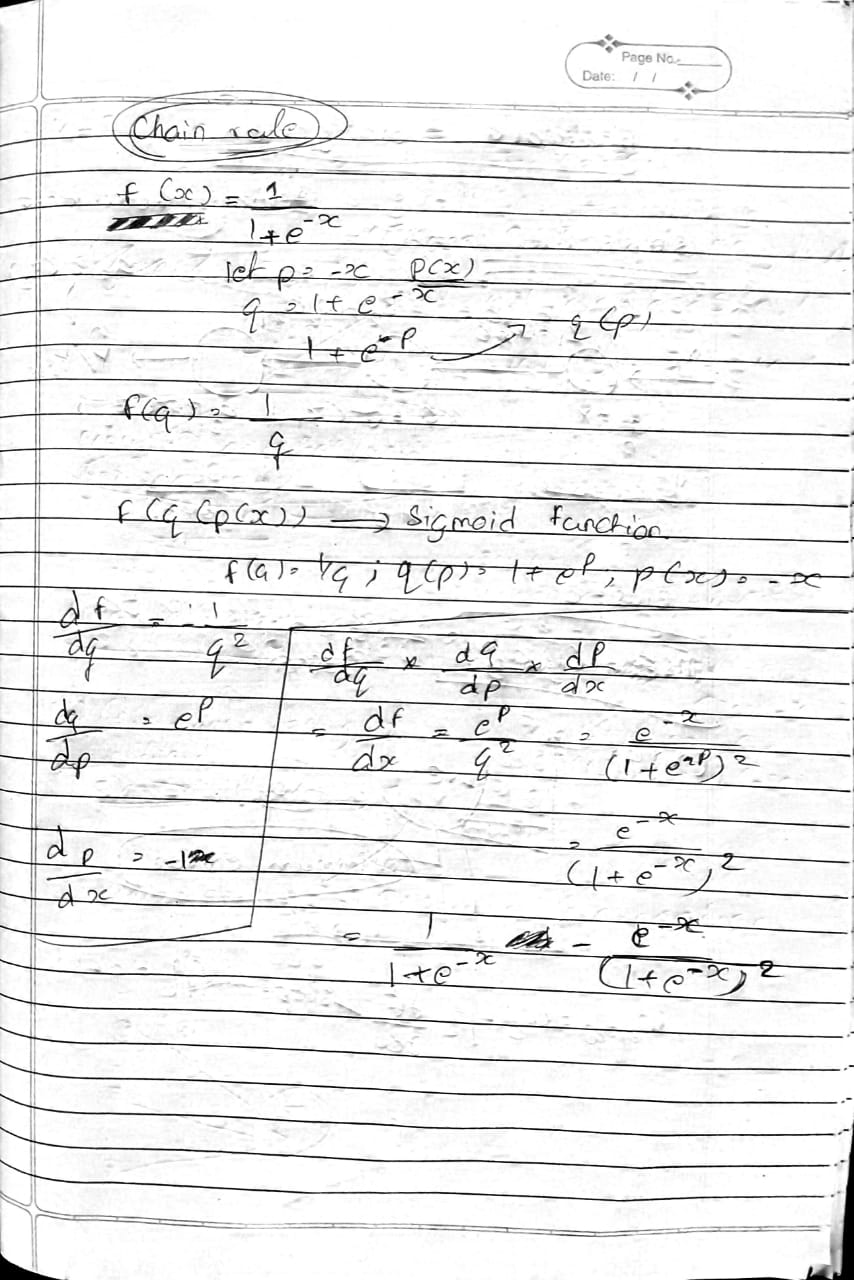 Page No.
Date: / /
Chain rule
f(x) = 1 / 1+e^-x
let p = -x p(x)
q = 1+e^-x
1+e^-p → q(p)
f(q) = 1/q
f(q(p(x)) → Sigmoid function.
f(q) = 1/q ; q(p) = 1+e^p, p(x) = -x
df/dq = -1/q^2
df/dq * dq/dp * dp/dx
dq/dp = e^p
= df/dx = e^p/q^2 = e^-x/(1+e^-p)^2
dp/dx = -1
= e^-x/(1+e^-x)^2
= 1/1+e^-x - e^-x/(1+e^-x)^2